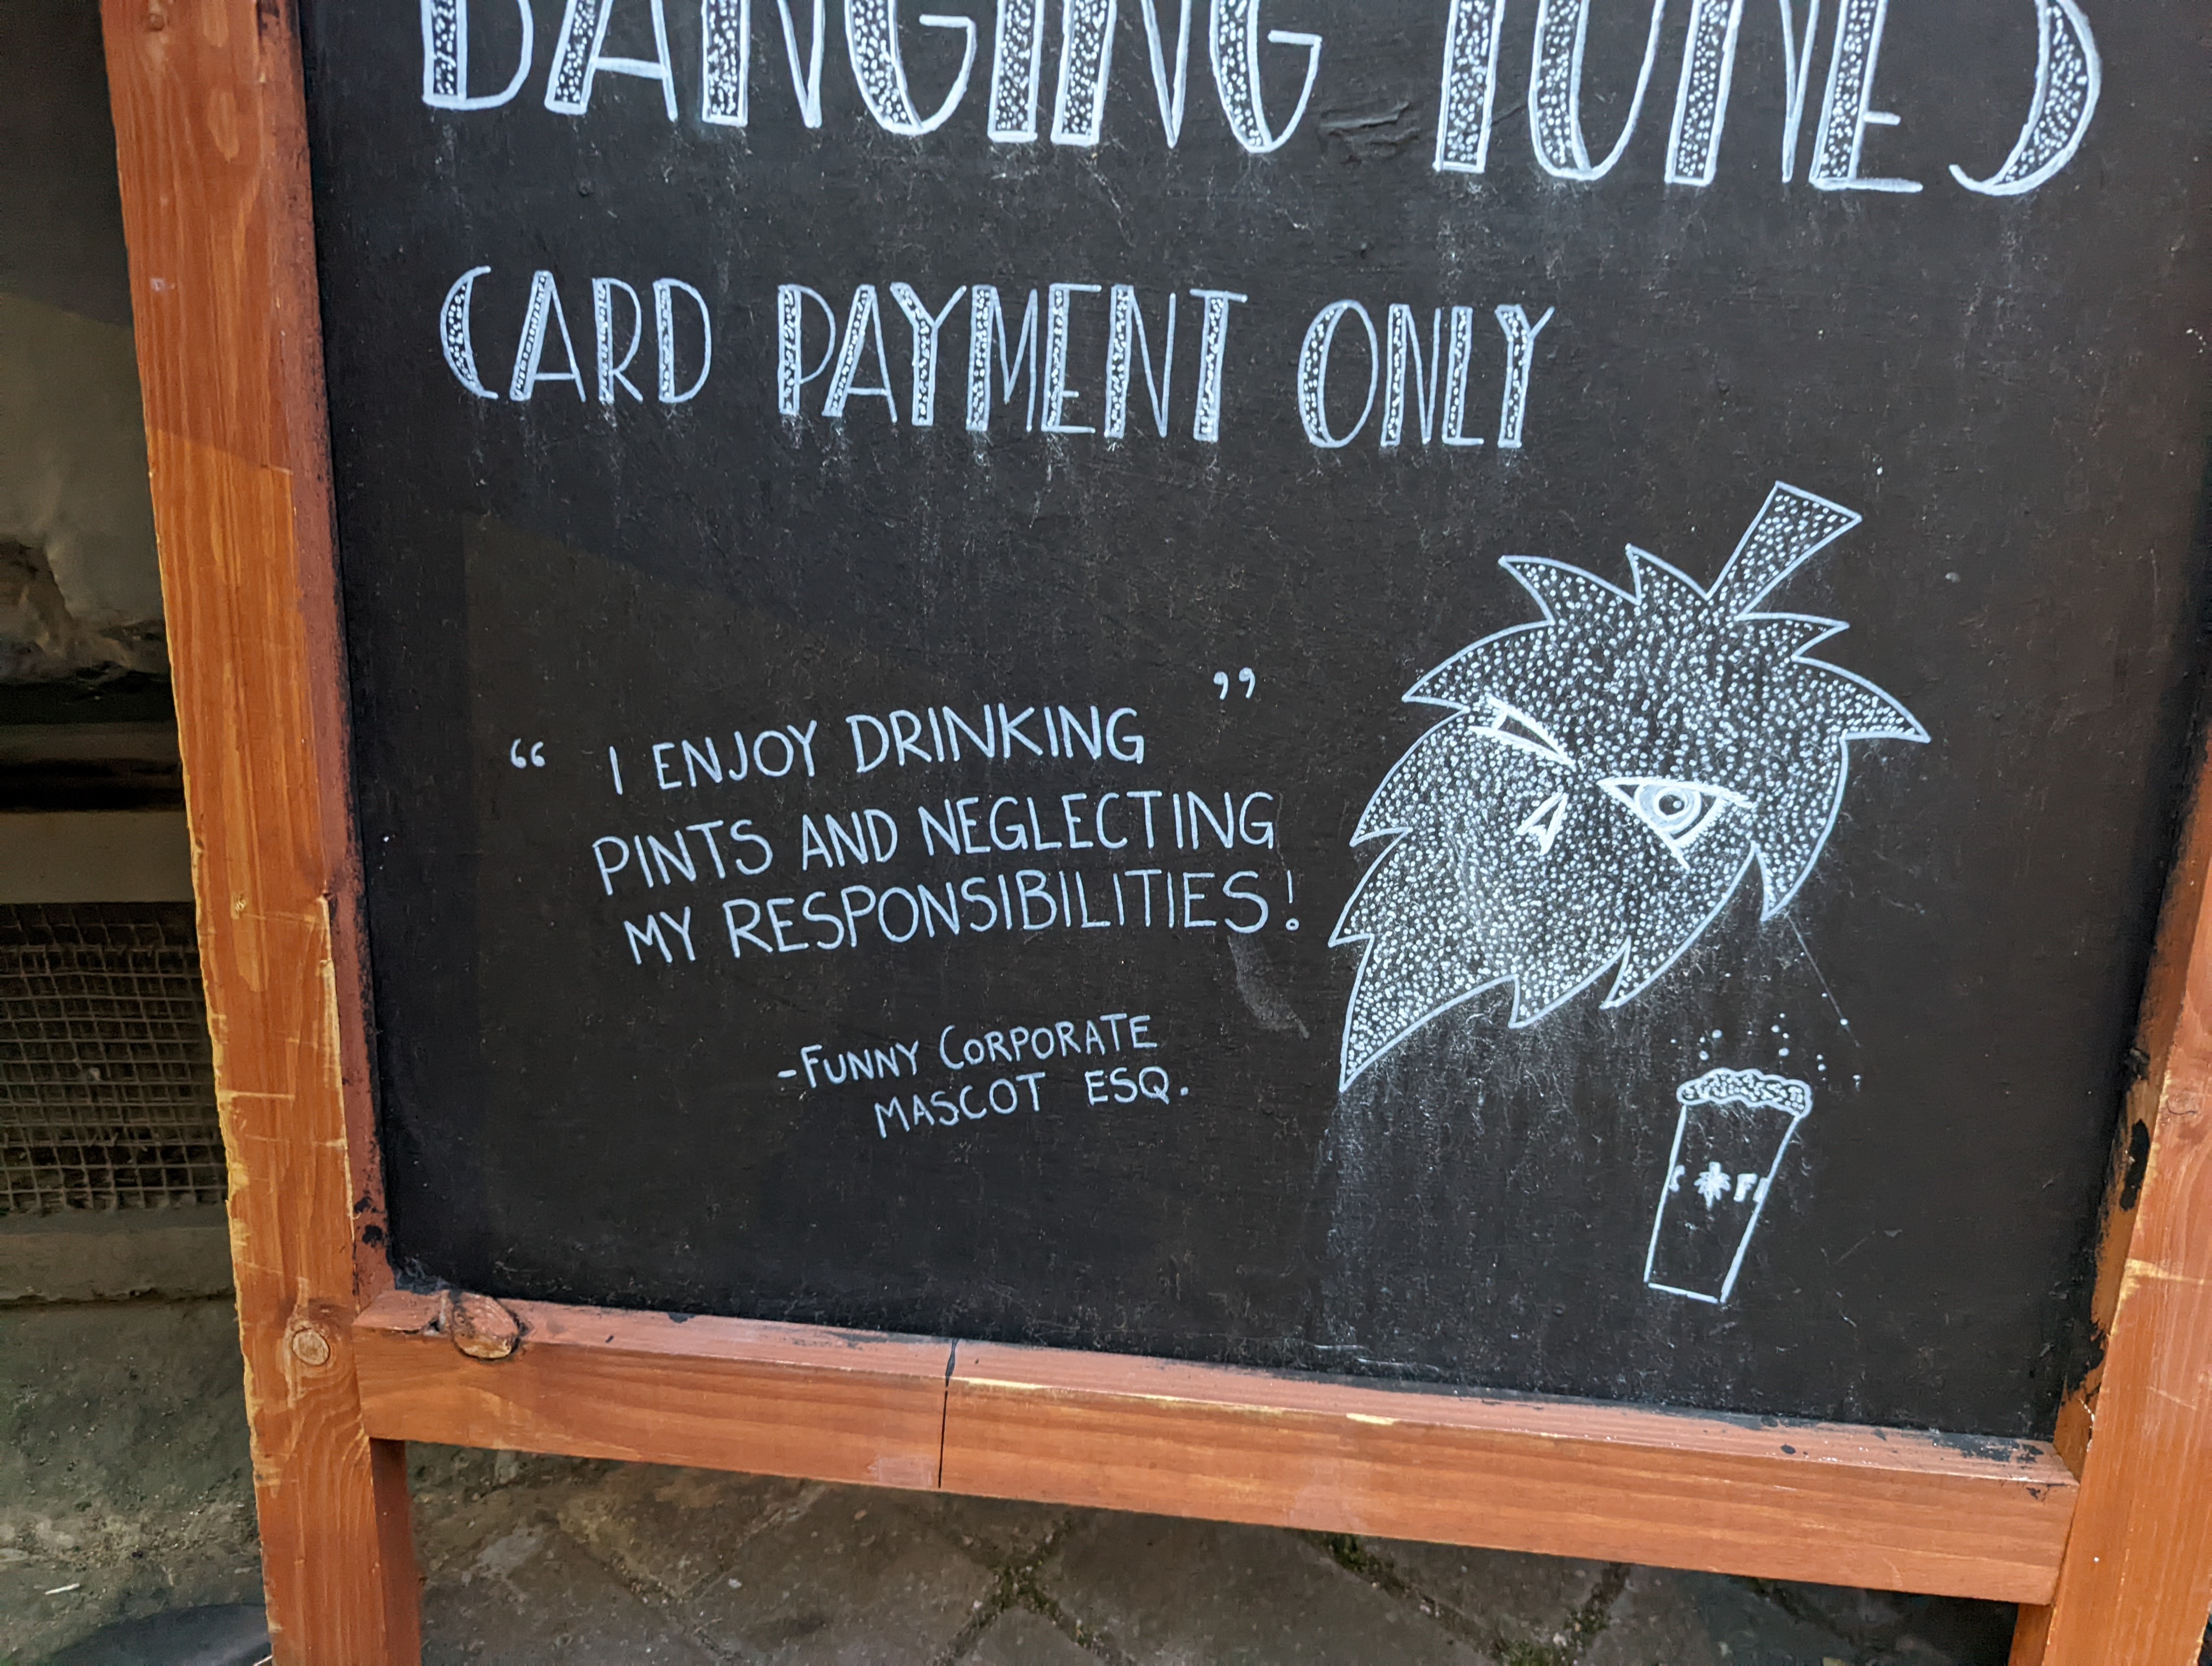 BANGING TUNES
CARD PAYMENT ONLY
“ I ENJOY DRINKING ”
PINTS AND NEGLECTING
MY RESPONSIBILITIES!
-FUNNY CORPORATE
MASCOT ESQ.